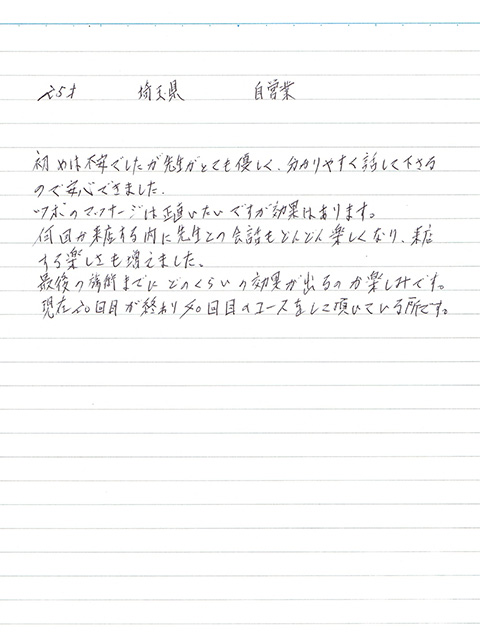 25才 埼玉県 自営業
初めは不安でしたが先生がとても優しく、分かりやすく話して下さる
ので安心できました。
ツボのマッサージは正直いたいですが効果はあります。
何回か来店する内に先生との会話もどんどん楽しくなり、来店
する楽しさも増えました、
最後の施術までに どのくらいの効果が出るのか楽しみです。
現在20回目が終わり40回目のコースをして頂いている所です。